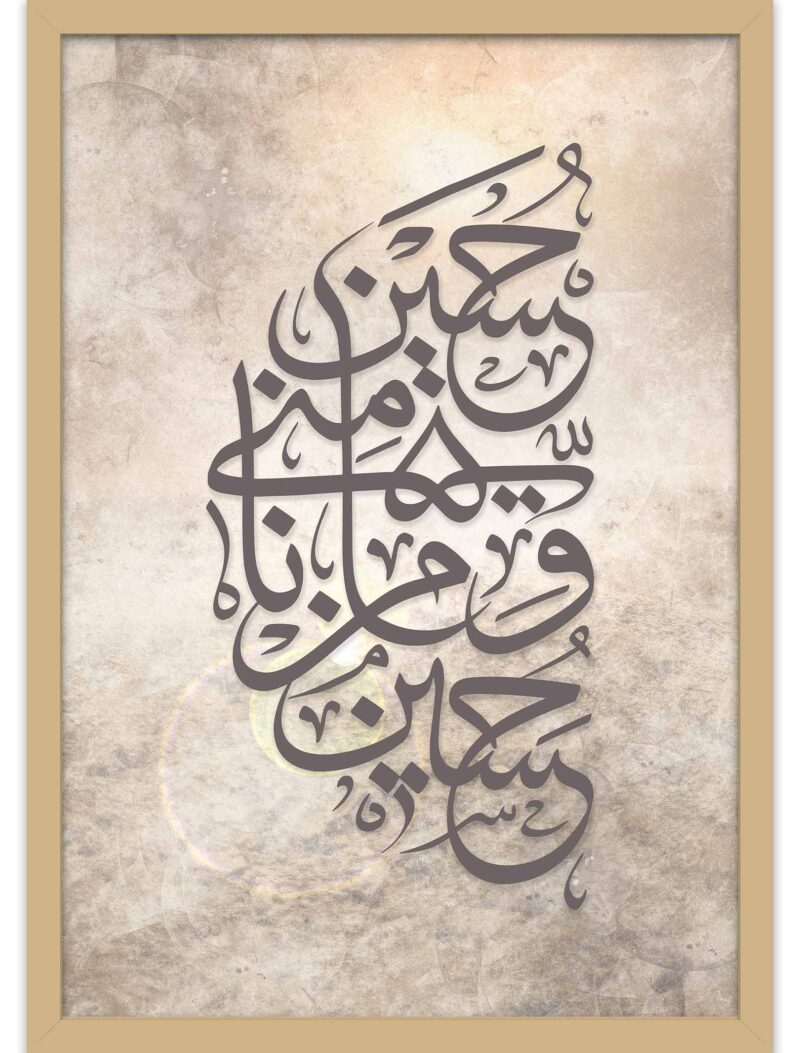 حسين
مني
وانا من
حسين